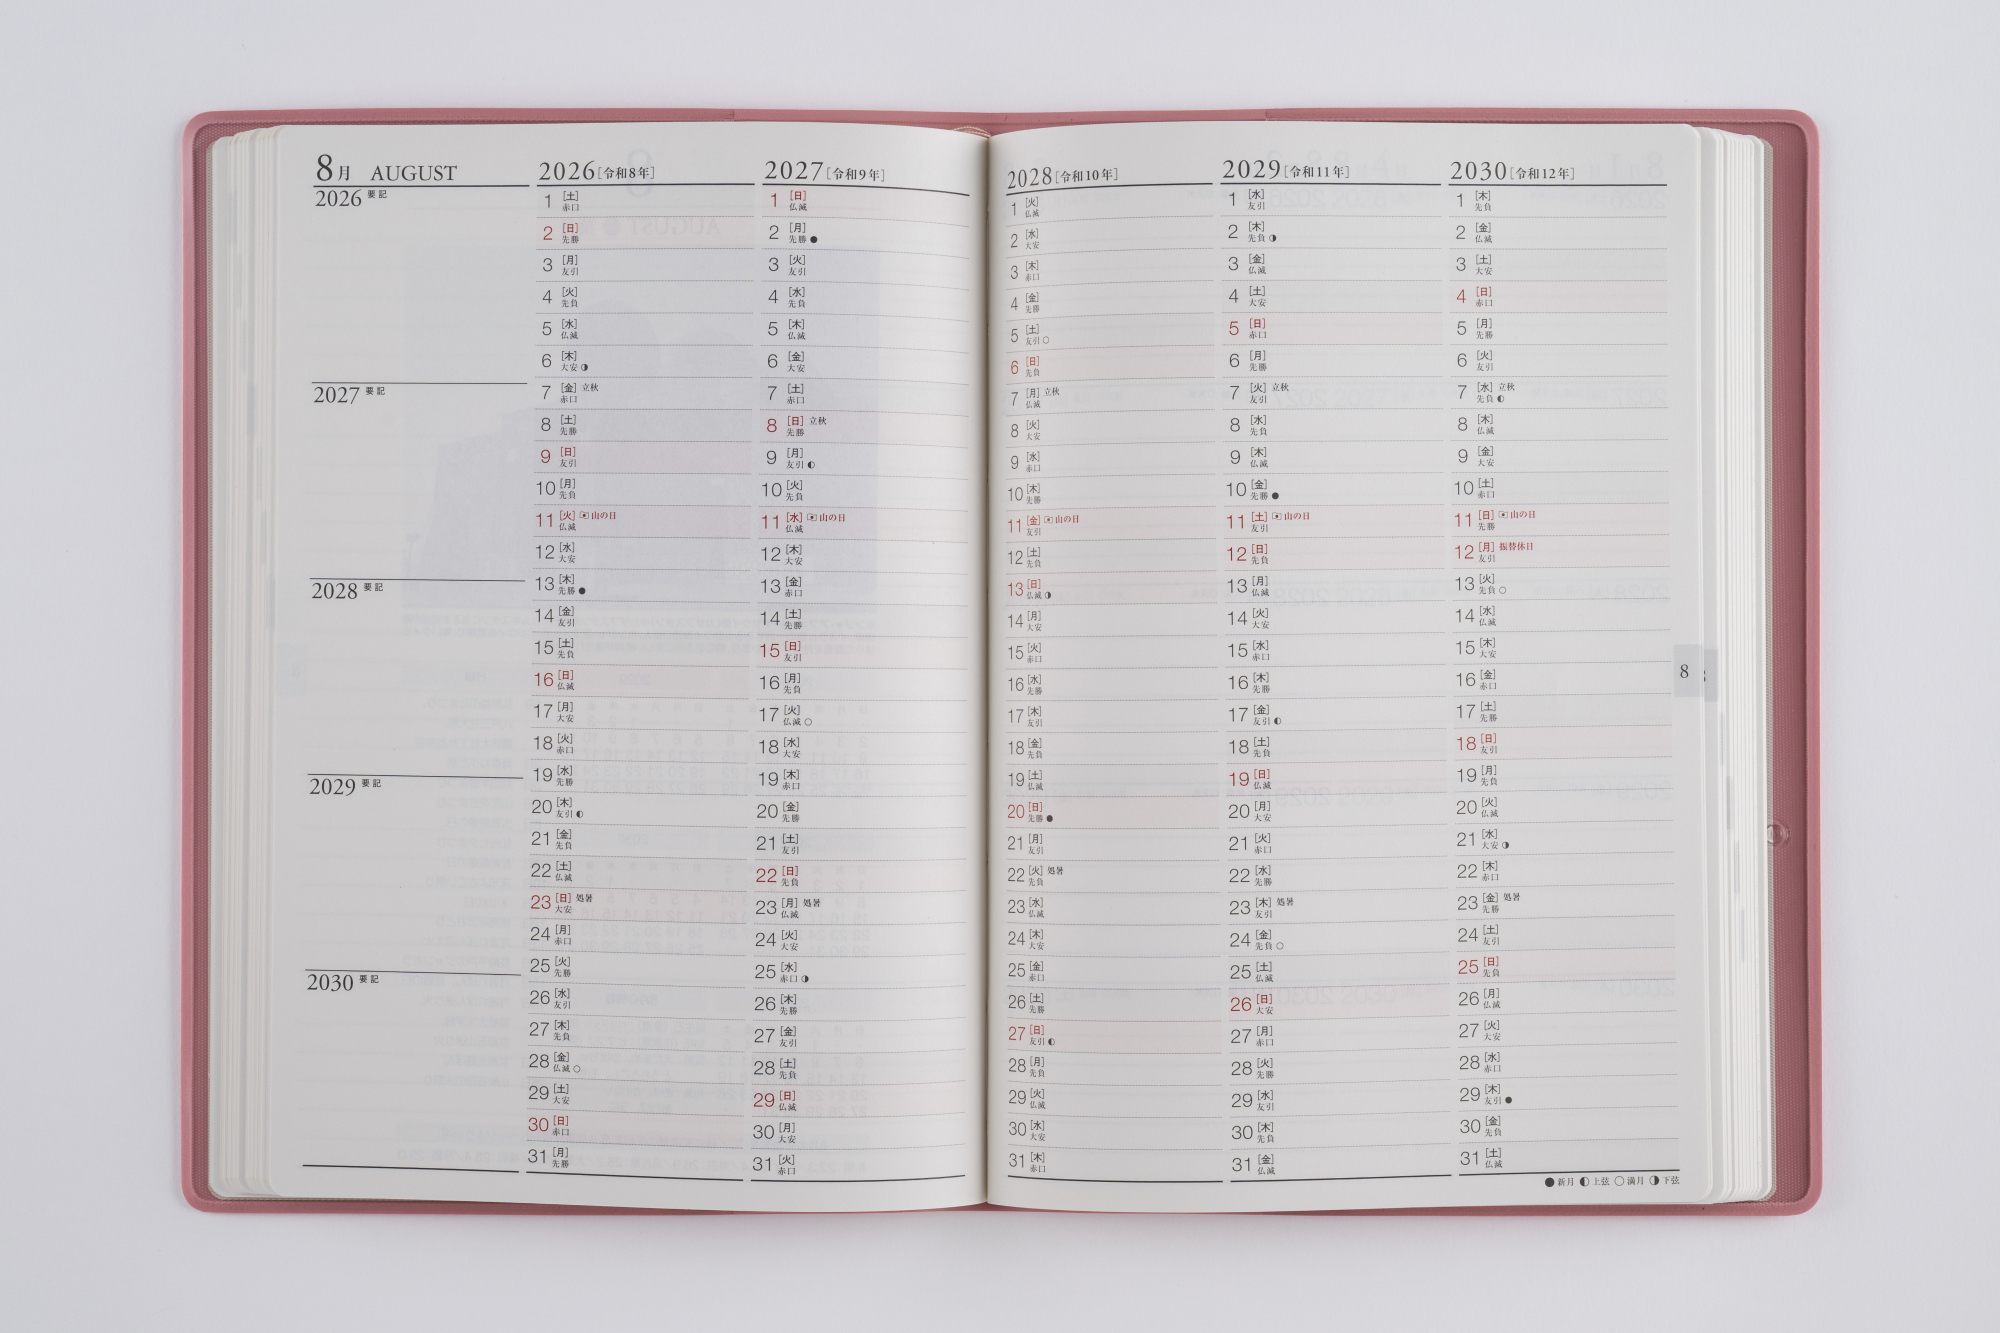 8月 AUGUST
2026 要記
2027 要記
2028 要記
2029 要記
2030 要記
2026[令和8年]
1 [土] 赤口
2 [日] 先勝
3 [月] 友引
4 [火] 先負
5 [水] 仏滅
6 [木] 大安 ◑
7 [金] 立秋 赤口
8 [土] 先勝
9 [日] 友引
10 [月] 先負
11 [火] 山の日 仏滅
12 [水] 大安
13 [木] 先勝 ●
14 [金] 友引
15 [土] 先負
16 [日] 仏滅
17 [月] 大安
18 [火] 赤口
19 [水] 先勝
20 [木] 友引 ◐
21 [金] 先負
22 [土] 仏滅
23 [日] 処暑 大安
24 [月] 赤口
25 [火] 先勝
26 [水] 友引
27 [木] 先負
28 [金] 仏滅 ○
29 [土] 大安
30 [日] 赤口
31 [月] 先勝
2027[令和9年]
1 [日] 仏滅
2 [月] 先勝 ●
3 [火] 友引
4 [水] 先負
5 [木] 仏滅
6 [金] 大安
7 [土] 赤口
8 [日] 立秋 先勝
9 [月] 友引 ◐
10 [火] 先負
11 [水] 山の日 仏滅
12 [木] 大安
13 [金] 赤口
14 [土] 先勝
15 [日] 友引
16 [月] 先負
17 [火] 仏滅 ○
18 [水] 大安
19 [木] 赤口
20 [金] 先勝
21 [土] 友引
22 [日] 先負
23 [月] 処暑 仏滅
24 [火] 大安
25 [水] 赤口 ◑
26 [木] 先勝
27 [金] 友引
28 [土] 先負
29 [日] 仏滅
30 [月] 大安
31 [火] 赤口
2028[令和10年]
1 [火] 仏滅
2 [水] 大安
3 [木] 赤口
4 [金] 先勝
5 [土] 友引 ○
6 [日] 先負
7 [月] 立秋 仏滅
8 [火] 大安
9 [水] 赤口
10 [木] 先勝
11 [金] 山の日 友引
12 [土] 先負
13 [日] 仏滅 ◑
14 [月] 大安
15 [火] 赤口
16 [水] 先勝
17 [木] 友引
18 [金] 先負
19 [土] 仏滅
20 [日] 先勝 ●
21 [月] 友引
22 [火] 処暑 先負
23 [水] 仏滅
24 [木] 大安
25 [金] 赤口
26 [土] 先勝
27 [日] 友引 ◐
28 [月] 先負
29 [火] 仏滅
30 [水] 大安
31 [木] 赤口
2029[令和11年]
1 [水] 友引
2 [木] 先負 ◑
3 [金] 仏滅
4 [土] 大安
5 [日] 赤口
6 [月] 先勝
7 [火] 立秋 友引
8 [水] 先負
9 [木] 仏滅
10 [金] 先勝 ●
11 [土] 山の日 友引
12 [日] 先負
13 [月] 仏滅
14 [火] 大安
15 [水] 赤口
16 [木] 先勝
17 [金] 友引 ◐
18 [土] 先負
19 [日] 仏滅
20 [月] 大安
21 [火] 赤口
22 [水] 先勝
23 [木] 処暑 友引
24 [金] 先負 ○
25 [土] 仏滅
26 [日] 大安
27 [月] 赤口
28 [火] 先勝
29 [水] 友引
30 [木] 先負
31 [金] 仏滅
2030[令和12年]
1 [木] 先負
2 [金] 仏滅
3 [土] 大安
4 [日] 赤口
5 [月] 先勝
6 [火] 友引
7 [水] 立秋 先負 ◐
8 [木] 仏滅
9 [金] 大安
10 [土] 赤口
11 [日] 山の日 先勝
12 [月] 振替休日 友引
13 [火] 先負 ○
14 [水] 仏滅
15 [木] 大安
16 [金] 赤口
17 [土] 先勝
18 [日] 友引
19 [月] 先負
20 [火] 仏滅
21 [水] 大安 ◑
22 [木] 赤口
23 [金] 処暑 先勝
24 [土] 友引
25 [日] 先負
26 [月] 仏滅
27 [火] 大安
28 [水] 赤口
29 [木] 友引 ●
30 [金] 先負
31 [土] 仏滅
●新月 ◐上弦 ○満月 ◑下弦
8